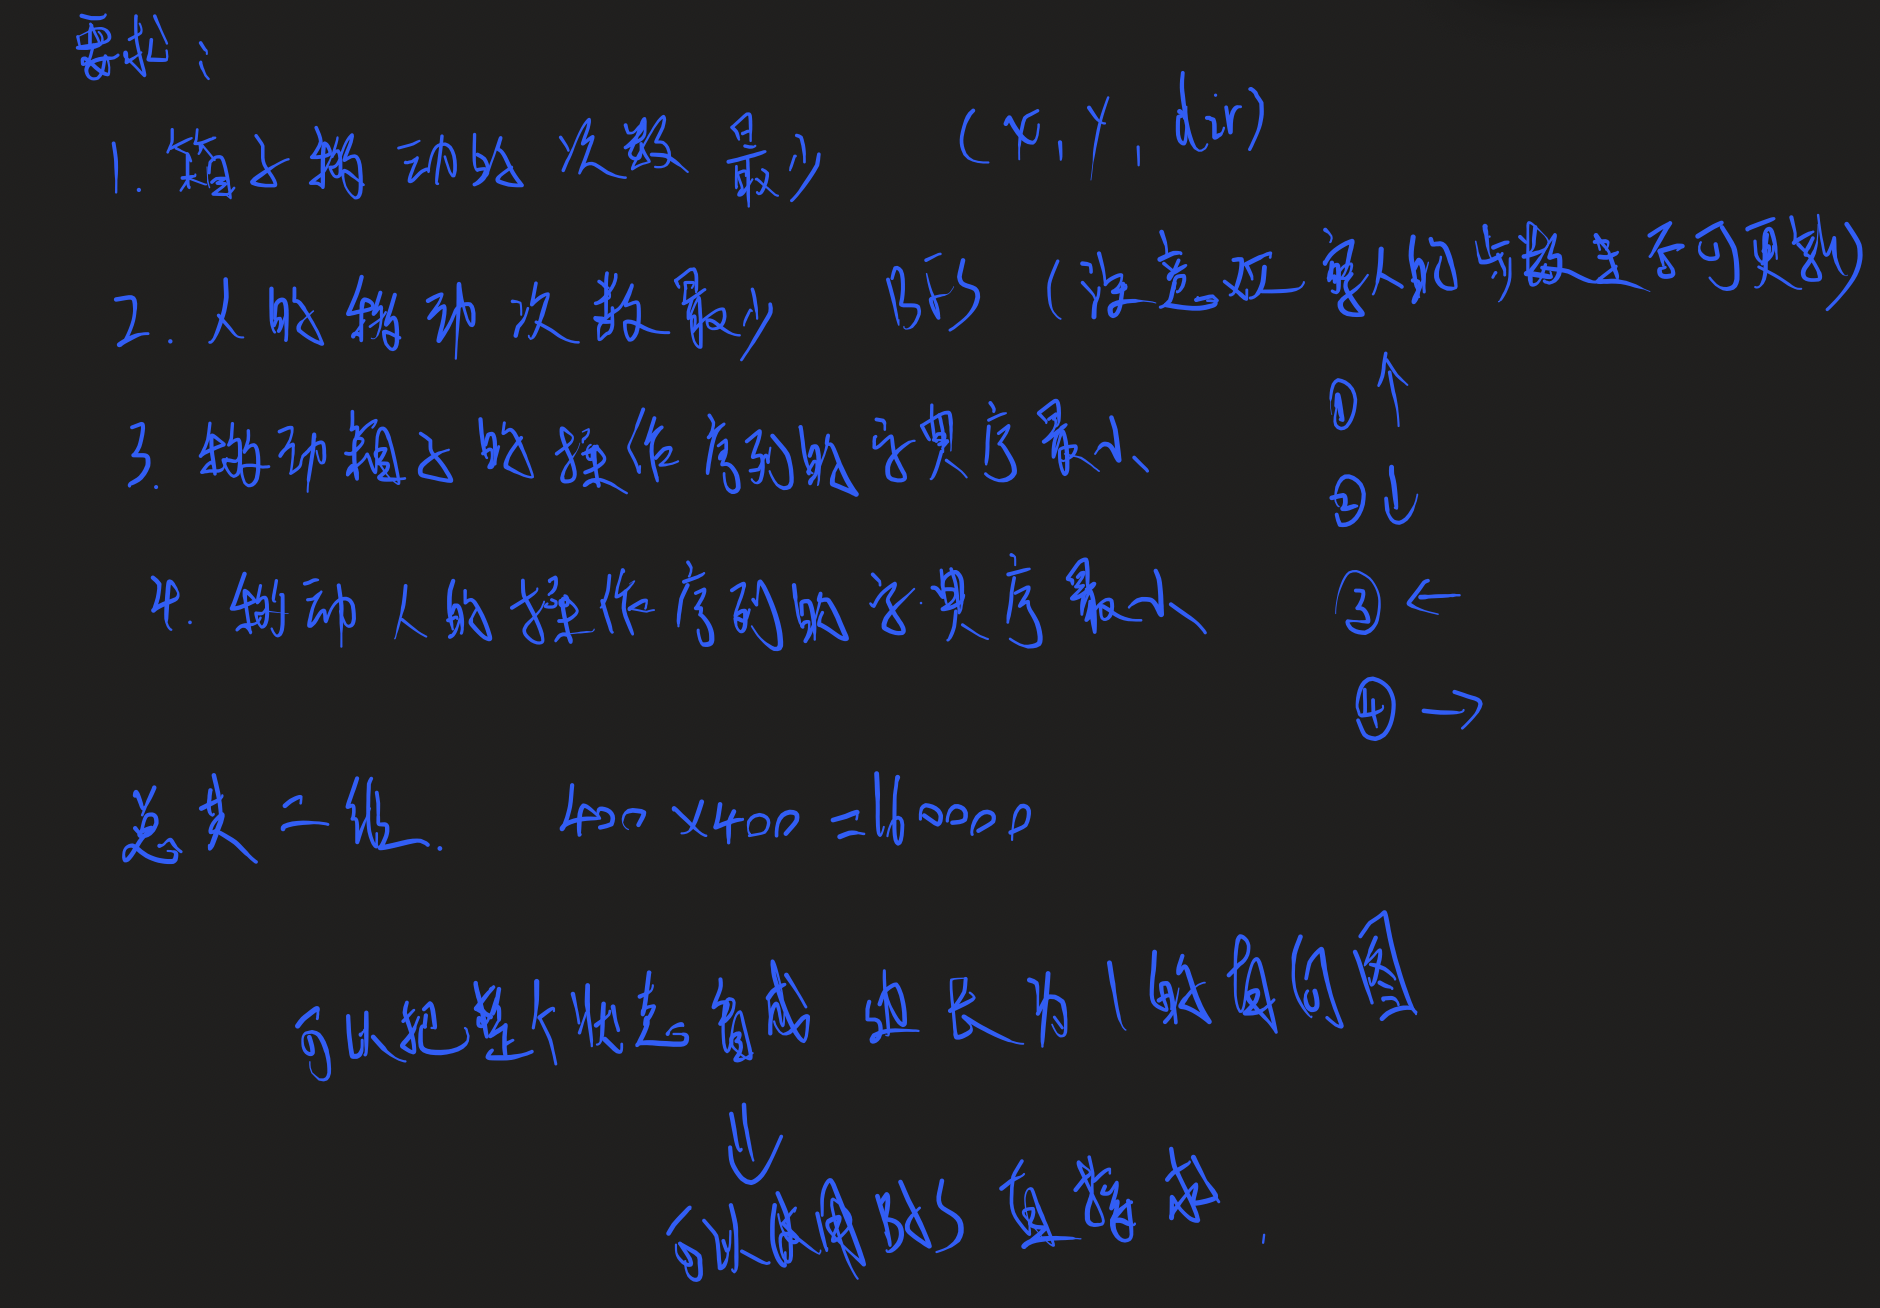 要求:
1. 箱子移动的次数最少 (x, y, dir)
2. 人的移动次数最少 BFS (注意还 人的步数是否可更新)
① ↑
3. 移动箱子的操作序列的字典序最小
② ↓
4. 移动人的操作序列的字典序最小
③ ←
④ →
总共二维. 400 × 400 = 160000
可以把整个状态看成边长为1的有向图
⇓
可以使用BFS直接求.